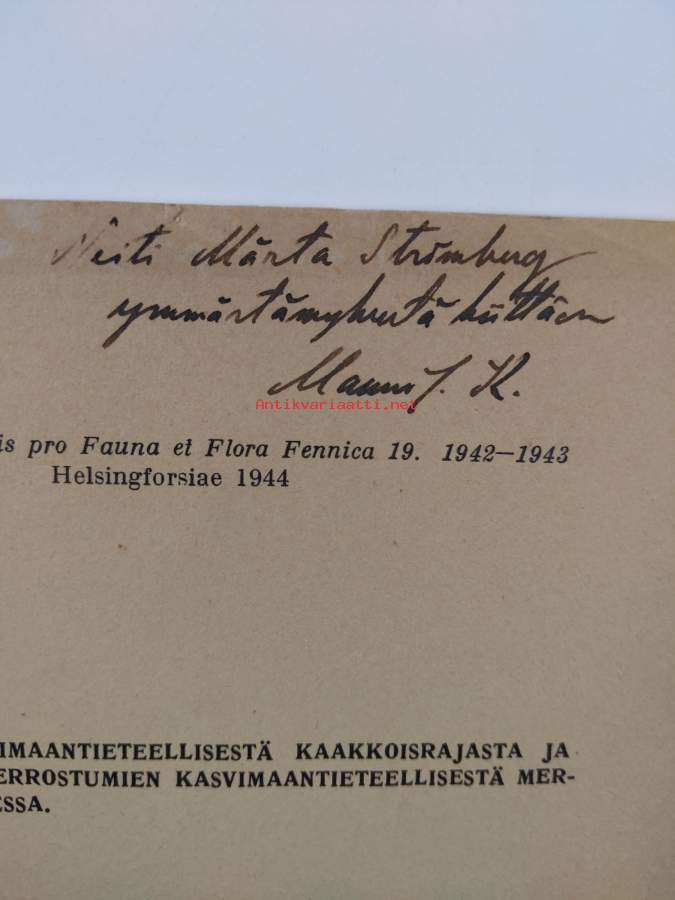 Neiti Märta Strömberg
ymmärtämyksestä kiittäen
Mauno J. K.
Antikvariaatti.net
is pro Fauna et Flora Fennica 19. 1942—1943
Helsingforsiae 1944
IMAANTIETEELLISESTÄ KAAKKOISRAJASTA JA
ERROSTUMIEN KASVIMAANTIETEELLISESTÄ MER-
ESSA.